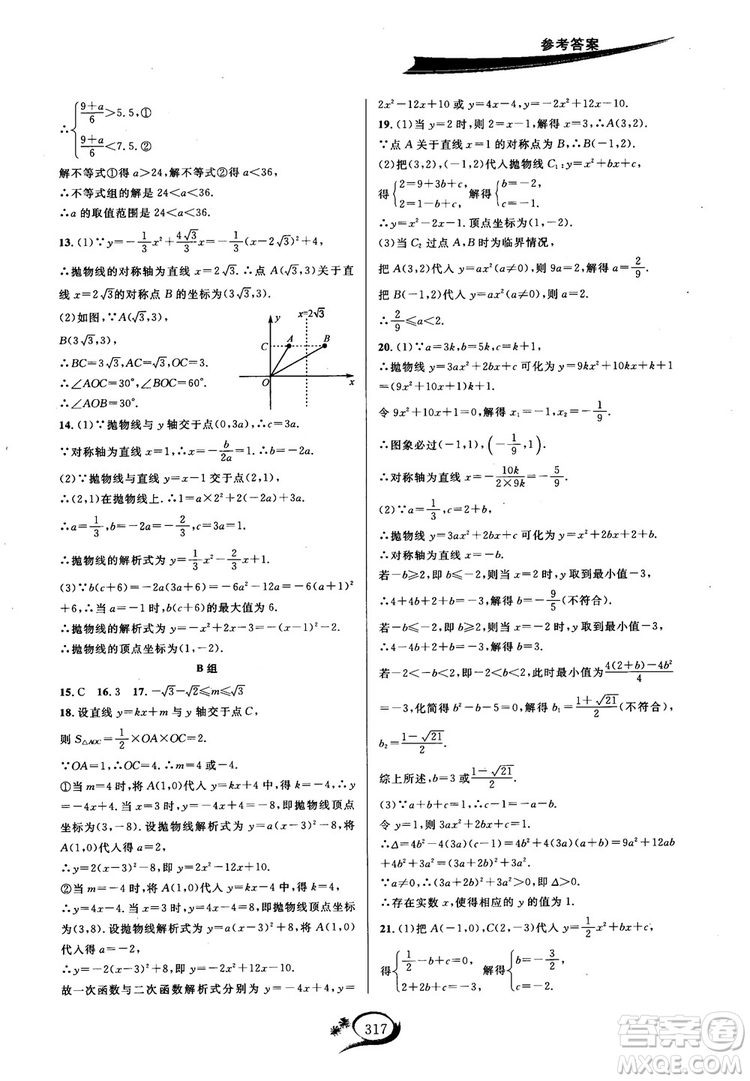 参考答案
∴{(9+a)/6>5.5,①
(9+a)/6<7.5.②
解不等式①得 a>24,解不等式②得 a<36.
∴不等式组的解是 24<a<36.
∴a 的取值范围是 24<a<36.
13. (1)∵y=-1/3x²+4√3/3x=-1/3(x-2√3)²+4,
∴抛物线的对称轴为直线 x=2√3. ∴点 A 关于直
线 x=2√3的对称点 B 的坐标为(3√3,3).
(2)如图,∵A(√3,3),
B(3√3,3),
∴BC=3√3,AC=√3,OC=3.
∴∠AOC=30°,∠BOC=60°.
∴∠AOB=30°.
y
x=2√3
C
A
B
O
x
14. (1)∵抛物线与 y 轴交于点(0,3a),∴c=3a.
∵对称轴为直线 x=1,∴x=-b/2a=1. ∴b=-2a.
(2)∵抛物线与直线 y=x-1 交于点(2,1),
∴(2,1)在抛物线上. ∴1=a×2²+2(-2a)+3a.
∴a=1/3. ∴b=-2a=-2/3,c=3a=1.
∴抛物线的解析式为 y=1/3x²-2/3x+1.
(3)∵b(c+6)=-2a(3a+6)=-6a²-12a=-6(a+1)²
+6,∴当 a=-1 时,b(c+6)的最大值为 6.
∴抛物线的解析式为 y=-x²+2x-3=-(x-1)²-2.
∴抛物线的顶点坐标为(1,-2).
B 组
15. C 16. 3 17. -√3-√2≤m≤√3
18. 设直线 y=kx+m 与 y 轴交于点 C,
则 S△AOC=1/2×OA×OC=2.
∵OA=1,∴OC=4. ∴m=±4.
①当 m=4 时,将 A(1,0)代人 y=kx+4 中,得 k=-4.
∴y=-4x+4. 当 x=3 时,y=-8,即抛物线顶点
坐标为(3,-8). 设抛物线解析式为 y=a(x-3)²-8,
将 A(1,0)代人得 a=2,
∴y=2(x-3)²-8,即 y=2x²-12x+10.
②当 m=-4 时,将 A(1,0)代人 y=kx-4 中,得 k=4.
∴y=4x-4. 当 x=3 时,y=8,即抛物线顶点坐标
为(3,8). 设抛物线解析式为 y=a(x-3)²+8,将
A(1,0)代人得 a=-2,
∴y=-2(x-3)²+8,即 y=-2x²+12x-10.
故一次函数与二次函数解析式分别为 y=-4x+4,y=
2x²-12x+10 或 y=4x-4,y=-2x²+12x-10.
19. (1)当 y=2 时,则 2=x-1,解得 x=3,∴A(3,2).
∵点 A 关于直线 x=1 的对称点为 B,∴B(-1,2).
(2)把(3,2),(-1,2)代人抛物线 C₁:y=x²+bx+c,
得{2=9+3b+c, 解得{b=-2,
2=1-b+c, c=-1.
∴y=x²-2x-1. 顶点坐标为(1,-2).
(3)当 C₂ 过点 A,B 时为临界情况,
把 A(3,2)代人 y=ax²(a≠0),则 9a=2,解得 a=2/9.
把 B(-1,2)代人 y=ax²(a≠0),解得 a=2.
∴2/9≤a<2.
20. (1)∵a=3k,b=5k,c=k+1,
∴抛物线 y=3ax²+2bx+c 可化为 y=9kx²+10kx+k+1
=(9x²+10x+1)k+1.
令 9x²+10x+1=0,解得 x₁=-1,x₂=-1/9.
∴图象必过(-1,1),(-1/9,1).
∴对称轴为直线 x=-10k/2×9k=-5/9.
(2)∵a=1/3,c=2+b,
∴抛物线 y=3ax²+2bx+c 可化为 y=x²+2bx+2+b.
∴对称轴为直线 x=-b.
若-b≥2,即 b≤-2,则当 x=2 时取到最小值-3,
∴4+4b+2+b=-3,解得 b=-9/5(不符合).
若-b≤-2,即 b≥2,则当 x=-2 时取到最小值-3,
∴4-4b+2+b=-3,解得 b=3.
若-2<-b<2,即-2<b<2,则最小值为4(2+b)-4b²/4
=-3,化简得 b²-b-5=0,解得 b₁=1+√21/2(不符合),
b₂=1-√21/2.
综上所述,b=3或1-√21/2.
(3)∵a+b+c=1,∴c-1=-a-b.
令 y=1,则 3ax²+2bx+c=1.
∴Δ=4b²-4(3a)(c-1)=4b²+4(3a)(a+b)=9a²+12ab
+4b²+3a²=(3a+2b)²+3a².
∵a≠0,∴(3a+2b)²+3a²>0. ∴Δ>0.
∴存在实数 x,使得相应的 y 的值为 1.
21. (1)把 A(-1,0),C(2,-3)代人 y=1/2x²+bx+c,
得{1/2-b+c=0, 解得{b=-3/2,
317
答案卷